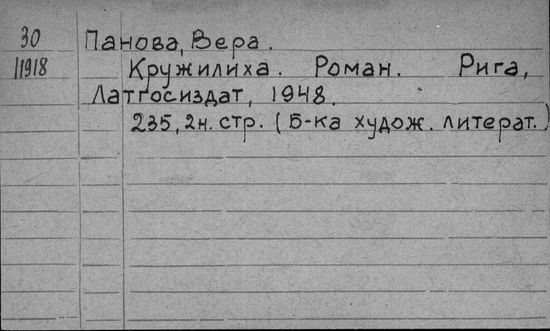 30 Панова, Вера.
11918 Кружилиха. Роман. Рига,
Латгосиздат, 1948.
235, 2н. стр. (Б-ка худож. литерат.)